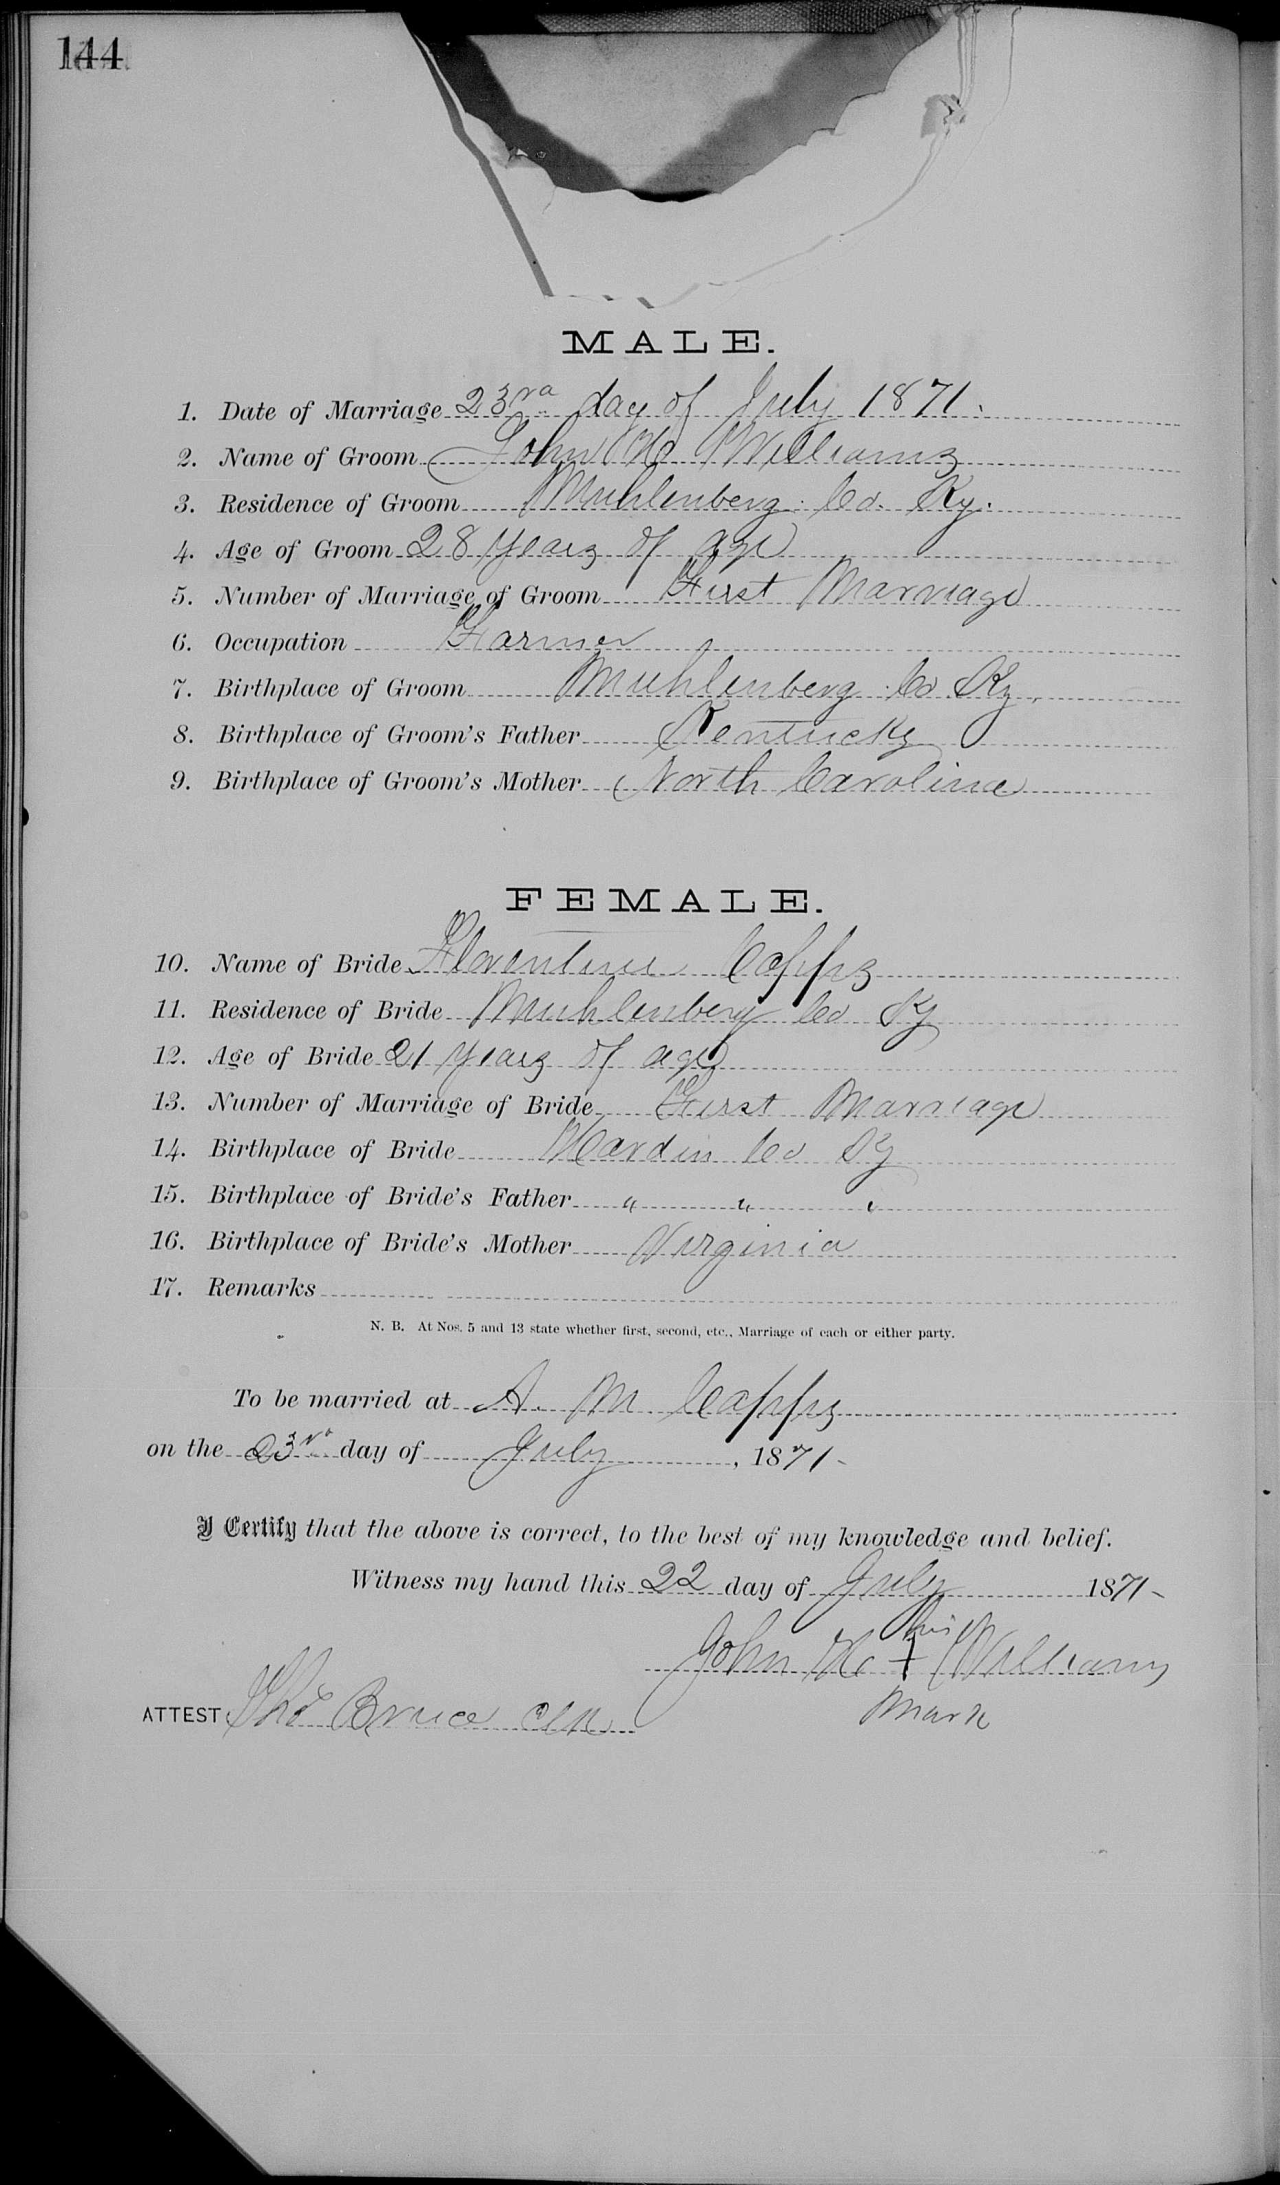 144
MALE.
1. Date of Marriage 23rd day of July 1871.
2. Name of Groom John H Williams
3. Residence of Groom Muhlenberg Co. Ky.
4. Age of Groom 28 years of age
5. Number of Marriage of Groom First Marriage
6. Occupation Farmer
7. Birthplace of Groom Muhlenberg Co Ky.
8. Birthplace of Groom's Father Kentucky
9. Birthplace of Groom's Mother North Carolina
FEMALE.
10. Name of Bride Florentine Capps
11. Residence of Bride Muhlenberg Co Ky
12. Age of Bride 21 years of age
13. Number of Marriage of Bride First Marriage
14. Birthplace of Bride Hardin Co Ky
15. Birthplace of Bride's Father " " "
16. Birthplace of Bride's Mother Virginia
17. Remarks
N. B. At Nos. 5 and 13 state whether first, second, etc., Marriage of each or either party.
To be married at A. M. Capps
on the 23rd day of July, 1871-
I Certify that the above is correct, to the best of my knowledge and belief.
Witness my hand this 22 day of July 1871-
his
John H. + Williams
mark
ATTEST: Bruce Clk